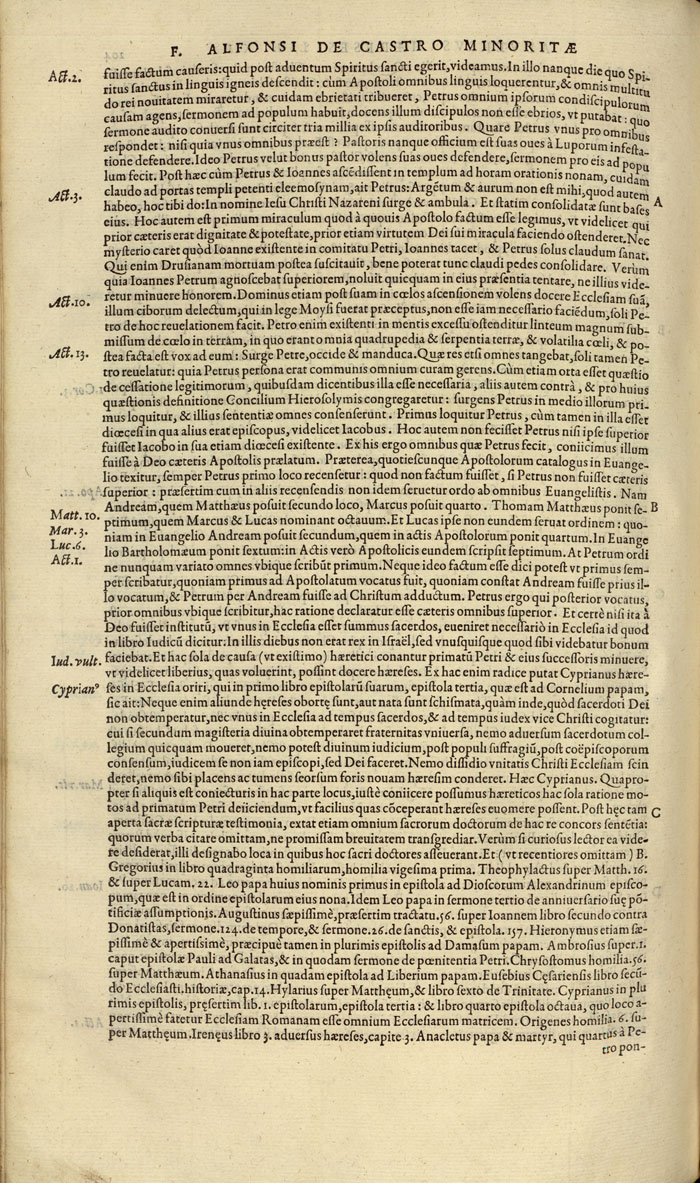 F. ALFONSI DE CASTRO MINORITÆ
Act.2.
fuisse factum causeris:quid post aduentum Spiritus sancti egerit,videamus.In illo nanque die quo Spi-
ritus sanctus in linguis igneis descendit : cùm Apostoli omnibus linguis loquerentur,& omnis multitu
do rei nouitatem miraretur, & cuidam ebrietati tribueret, Petrus omnium ipsorum condiscipulorum
causam agens,sermonem ad populum habuit,docens illum discipulos non esse ebrios, vt putabat : quo
sermone audito conuersi sunt circiter tria millia ex ipsis auditoribus. Quare Petrus vnus pro omnibus
respondet : nisi quia vnus omnibus præest ? Pastoris nanque officium est suas oues à Luporum infesta-
tione defendere.Ideo Petrus velut bonus pastor volens suas oues defendere,sermonem pro eis ad popu
lum fecit. Post hæc cùm Petrus & Ioannes ascẽdissent in templum ad horam orationis nonam, cuidam
claudo ad portas templi petenti eleemosynam,ait Petrus:Argẽtum & aurum non est mihi,quod autem
Act.3.
habeo,hoc tibi do:In nomine Iesu Christi Nazareni surge & ambula. Et statim consolidatæ sunt bases A
eius. Hoc autem est primum miraculum quod à quouis Apostolo factum esse legimus, vt videlicet qui
prior cæteris erat dignitate & potestate,prior etiam virtutem Dei sui miracula faciendo ostenderet.Nec
mysterio caret quòd Ioanne existente in comitatu Petri, Ioannes tacet, & Petrus solus claudum sanat.
Qui enim Drusianam mortuam postea suscitauit, bene poterat tunc claudi pedes consolidare. Verùm
quia Ioannes Petrum agnoscebat superiorem,noluit quicquam in eius præsentia tentare, ne illius vide-
Act.10.
retur minuere honorem.Dominus etiam post suam in cœlos ascensionem volens docere Ecclesiam suã,
illum ciborum delectum,qui in lege Moysi fuerat præceptus,non esse iam necessario faciẽdum,soli Pe-
tro de hoc reuelationem facit. Petro enim existenti in mentis excessu ostenditur linteum magnum sub-
missum de cœlo in terram, in quo erant omnia quadrupedia & serpentia terræ, & volatilia cœli, & po-
Act.13.
stea facta est vox ad eum : Surge Petre,occide & manduca.Quæ res etsi omnes tangebat,soli tamen Pe-
tro reuelatur: quia Petrus persona erat communis omnium curam gerens.Cùm etiam orta esset quæstio
de cessatione legitimorum, quibusdam dicentibus illa esse necessaria, aliis autem contrà, & pro huius
quæstionis definitione Concilium Hierosolymis congregaretur : surgens Petrus in medio illorum pri-
mus loquitur, & illius sententiæ omnes consenserunt. Primus loquitur Petrus, cùm tamen in illa esset
diœcesi in qua alius erat episcopus, videlicet Iacobus. Hoc autem non fecisset Petrus nisi ipse superior
fuisset Iacobo in sua etiam diœcesi existente. Ex his ergo omnibus quæ Petrus fecit, coniicimus illum
fuisse à Deo cæteris Apostolis prælatum. Præterea,quotiescunque Apostolorum catalogus in Euange-
lio texitur, semper Petrus primo loco recensetur : quod non factum fuisset, si Petrus non fuisset cæteris
superior : præsertim cum in aliis recensendis non idem seruetur ordo ab omnibus Euangelistis. Nam
Andream,quem Matthæus posuit secundo loco, Marcus posuit quarto. Thomam Matthæus ponit se- B
Matt.10.
ptimum,quem Marcus & Lucas nominant octauum.Et Lucas ipse non eundem seruat ordinem : quo-
Mar.3.
niam in Euangelio Andream posuit secundum,quem in actis Apostolorum ponit quartum.In Euange
Luc.6.
lio Bartholomæum ponit sextum:in Actis verò Apostolicis eundem scripsit septimum.At Petrum ordi
Act.1.
ne nunquam variato omnes vbique scribũt primum.Neque ideo factum esse dici potest vt primus sem-
per scribatur,quoniam primus ad Apostolatum vocatus fuit, quoniam constat Andream fuisse prius il-
lo vocatum,& Petrum per Andream fuisse ad Christum adductum. Petrus ergo qui posterior vocatus,
prior omnibus vbique scribitur,hac ratione declaratur esse cæteris omnibus superior. Et certè nisi ita à
Deo fuisset institutũ, vt vnus in Ecclesia esset summus sacerdos, eueniret necessariò in Ecclesia id quod
in libro Iudicũ dicitur:In illis diebus non erat rex in Israël,sed vnusquisque quod sibi videbatur bonum
Iud.vult.
faciebat.Et hac sola de causa (vt existimo) hæretici conantur primatũ Petri & eius successoris minuere,
vt videlicet liberius, quas voluerint, possint docere hæreses. Ex hac enim radice putat Cyprianus hære-
Cyprianꝰ
ses in Ecclesia oriri, qui in primo libro epistolarũ suarum, epistola tertia, quæ est ad Cornelium papam,
sic ait:Neque enim aliunde hęreses obortę sunt,aut nata sunt schismata,quàm inde,quòd sacerdoti Dei
non obtemperatur,nec vnus in Ecclesia ad tempus sacerdos,& ad tempus iudex vice Christi cogitatur:
cui si secundum magisteria diuina obtemperaret fraternitas vniuersa, nemo aduersum sacerdotum col-
legium quicquam moueret,nemo post diuinum iudicium,post populi suffragiũ,post coëpiscoporum
consensum,iudicem se non iam episcopi,sed Dei faceret.Nemo dissidio vnitatis Christi Ecclesiam scin
deret,nemo sibi placens ac tumens seorsum foris nouam hæresim conderet. Hæc Cyprianus. Quapro-
pter si aliquis est coniecturis in hac parte locus,iustè coniicere possumus hæreticos hac sola ratione mo-
tos ad primatum Petri deiiciendum,vt facilius quas cõceperant hæreses euomere possent.Post hęc tam C
aperta sacræ scripturæ testimonia, extat etiam omnium sacrorum doctorum de hac re concors sentẽtia:
quorum verba citare omittam,ne promissam breuitatem transgrediar.Verùm si curiosus lector ea vide-
re desiderat,illi designabo loca in quibus hoc sacri doctores asseuerant.Et ( vt recentiores omittam ) B.
Gregorius in libro quadraginta homiliarum,homilia vigesima prima. Theophylactus super Matth. 16.
& super Lucam. 22. Leo papa huius nominis primus in epistola ad Dioscorum Alexandrinum episco-
pum,quæ est in ordine epistolarum eius nona.Idem Leo papa in sermone tertio de anniuersario suę põ-
tificiæ assumptionis.Augustinus sæpissimè,præsertim tractatu.56. super Ioannem libro secundo contra
Donatistas,sermone.124.de tempore,& sermone.26.de sanctis, & epistola. 157. Hieronymus etiam sæ-
pissimè & apertissimè, præcipuè tamen in plurimis epistolis ad Damasum papam. Ambrosius super.1.
caput epistolæ Pauli ad Galatas,& in quodam sermone de pœnitentia Petri.Chrysostomus homilia.56.
super Matthæum. Athanasius in quadam epistola ad Liberium papam.Eusebius Cęsariensis libro secũ-
do Ecclesiasti.historiæ,cap.14.Hylarius super Matthęum,& libro sexto de Trinitate. Cyprianus in plu
rimis epistolis, pręsertim lib. 1. epistolarum,epistola tertia : & libro quarto epistola octaua, quo loco a-
pertissimè fatetur Ecclesiam Romanam esse omnium Ecclesiarum matricem. Origenes homilia. 6. su-
per Matthęum.Irenęus libro 3. aduersus hæreses,capite 3. Anacletus papa & martyr, qui quartus à Pe-
tro pon-